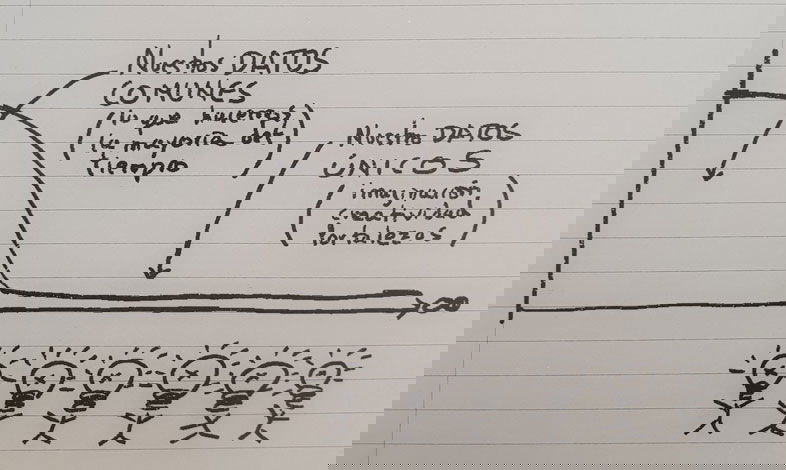 Nuestros DATOS
COMUNES
(lo que hacemos
la mayoría del
tiempo
Nuestro DATOS
ÚNICOS
(imaginación
creatividad
fortalezas)
∞